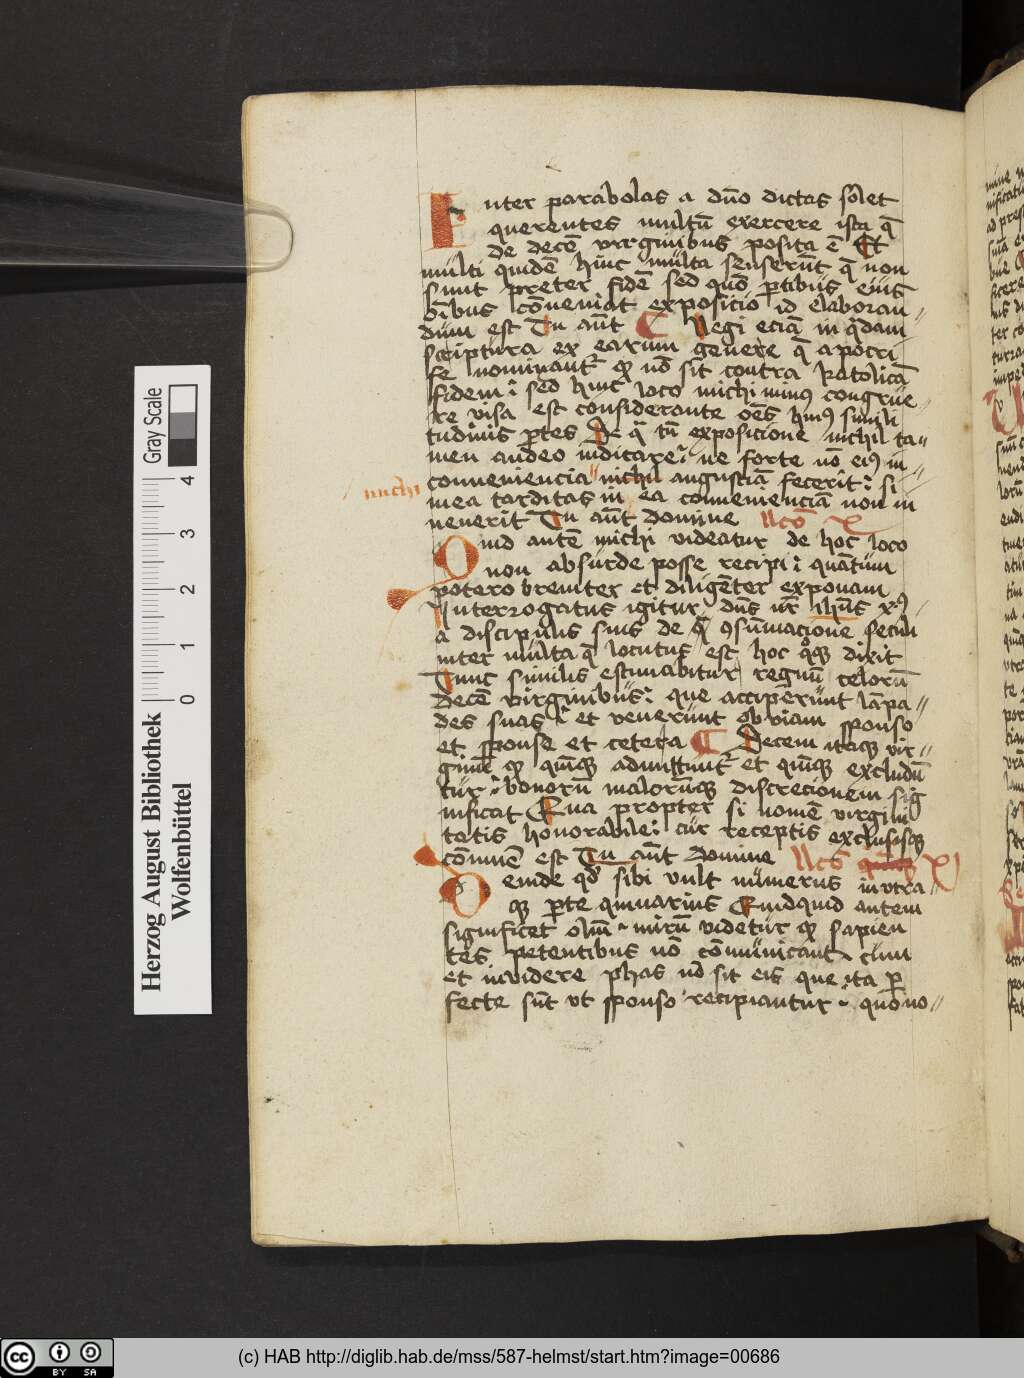 Inter parabolas a dn̄o dictas solet
querentes multū exercere ista q̄
de decē virginibus posita ē Et
multi quidē hinc multa senserūt q̄ non
sunt preter fidē sed quō ꝑtibus eius
oībus cōueniat exposicio id elaboran
dum est Tu aūt Legi eciā in q̄dam
scriptura ex earum genere q̄ apocri
fe nominant ꝙ nō sit contra katolicā
fidem sed hinc loco michi minꝰ congrue
re visa est considerante oēs huiꝰ simili
tudinis ꝑtes De q̄ tn̄ exposicione nichil ta
men audeo iudicare ne forte nō eiꝰ in
conueniencia nichil angustiā fecerit si
michi
mea tarditas in ea conuenienciā non in
uenerit Tu aūt domine Lcō X
Quid autē michi videatur de hoc loco
non absurde posse recipi quātum
potero breuiter et diligēter exponam
Interrogatus igitur dn̄s nr̄ ihūs xꝰ
a discipulis suis de q̄ ꝯsūmacione seculi
inter multa q̄ locutus est hoc qoꝙ dixit
Tunc similis estimabitur regnū celorū
decē virginibus que acceperunt lāpa
des suas et venerunt obuiam sponso
et sponse et cetera Decem itaqꝫ vir
gines ꝙ quīqꝫ admittunt et quīqꝫ excludū
tur bonorū malorūqꝫ discrecionem sig
nificat Qua propter si nomē virgini
tatis honorabile cur receptis exclusisqꝫ
cōmune est Tu aūt domine Lcō XI
Deinde qd sibi vult numerus in vtra
qꝫ ꝑte quinarius Quidquid autem
significet olm̄ mirū videtur ꝙ sapien
tes petentibus nō cōmunicant cum
et inuidere phas nō sit eis que ita ꝑ
fecte sūt vt sponso recipiantur quō no
Herzog August Bibliothek
Wolfenbüttel
Gray Scale
0 1 2 3 4
cc BY SA
(c) HAB http://diglib.hab.de/mss/587-helmst/start.htm?image=00686